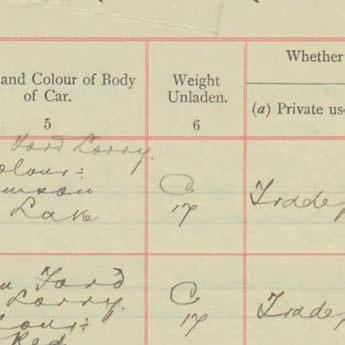 and Colour of Body
of Car.
5
Weight
Unladen.
6
Whether
(a) Private us
Ford Lorry.
olour:
imson
Lake
C
17
Trade,
Ford
Lorry.
lour:
Red
C
17
Trade,